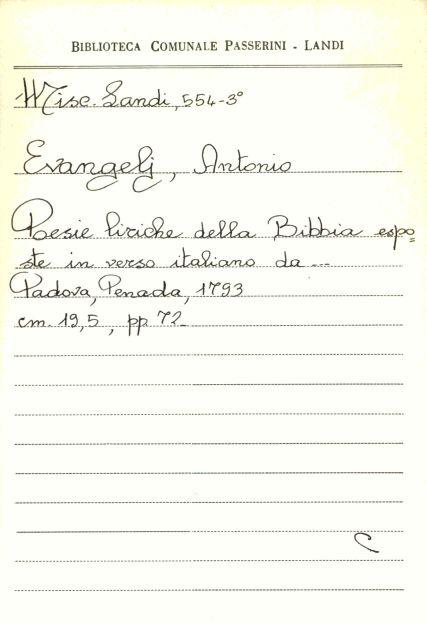 BIBLIOTECA COMUNALE PASSERINI - LANDI
Misc. Landi, 554-3°
Evangelj, Antonio
Poesie liriche della Bibbia espo=
ste in verso italiano da ...
Padova, Penada, 1793
cm. 19,5, pp. 72
C